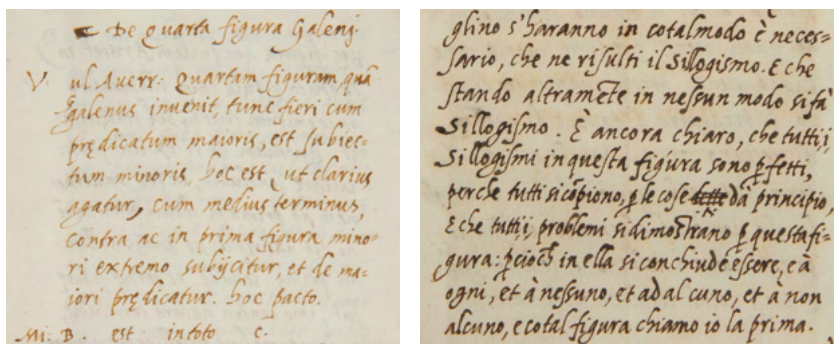 De Quarta figura Galenj
Vul Auerr: Quartam figuram quã
galenus inuenit, tunc fieri cum
prędicatum maioris, est subiec=
tum minoris, hoc est, ut clarius
agatur, cum medius terminus,
contra ac in prima figura mino=
ri extremo subijcitur, et de ma=
iori prędicatur. hoc pacto.
Mi: B. est in toto C.
glino s'haranno in cotal modo è neces=
sario, che ne risulti il sillogismo. E che
stando altramẽte in nessun modo si fa
sillogismo. È ancora chiaro, che tutti i
sillogismi in questa figura sono ꝑfetti,
perche tutti si cõpiono, ꝑ le cose dà principio,
E che tutti i, problemi si dimostrano ꝑ questa fi=
gura: ꝑcioch in ella si conchiude essere, e à
ogni, et à nessuno, et ad alcuno, et à non
alcuno, e cotal figura chiamo io la prima.